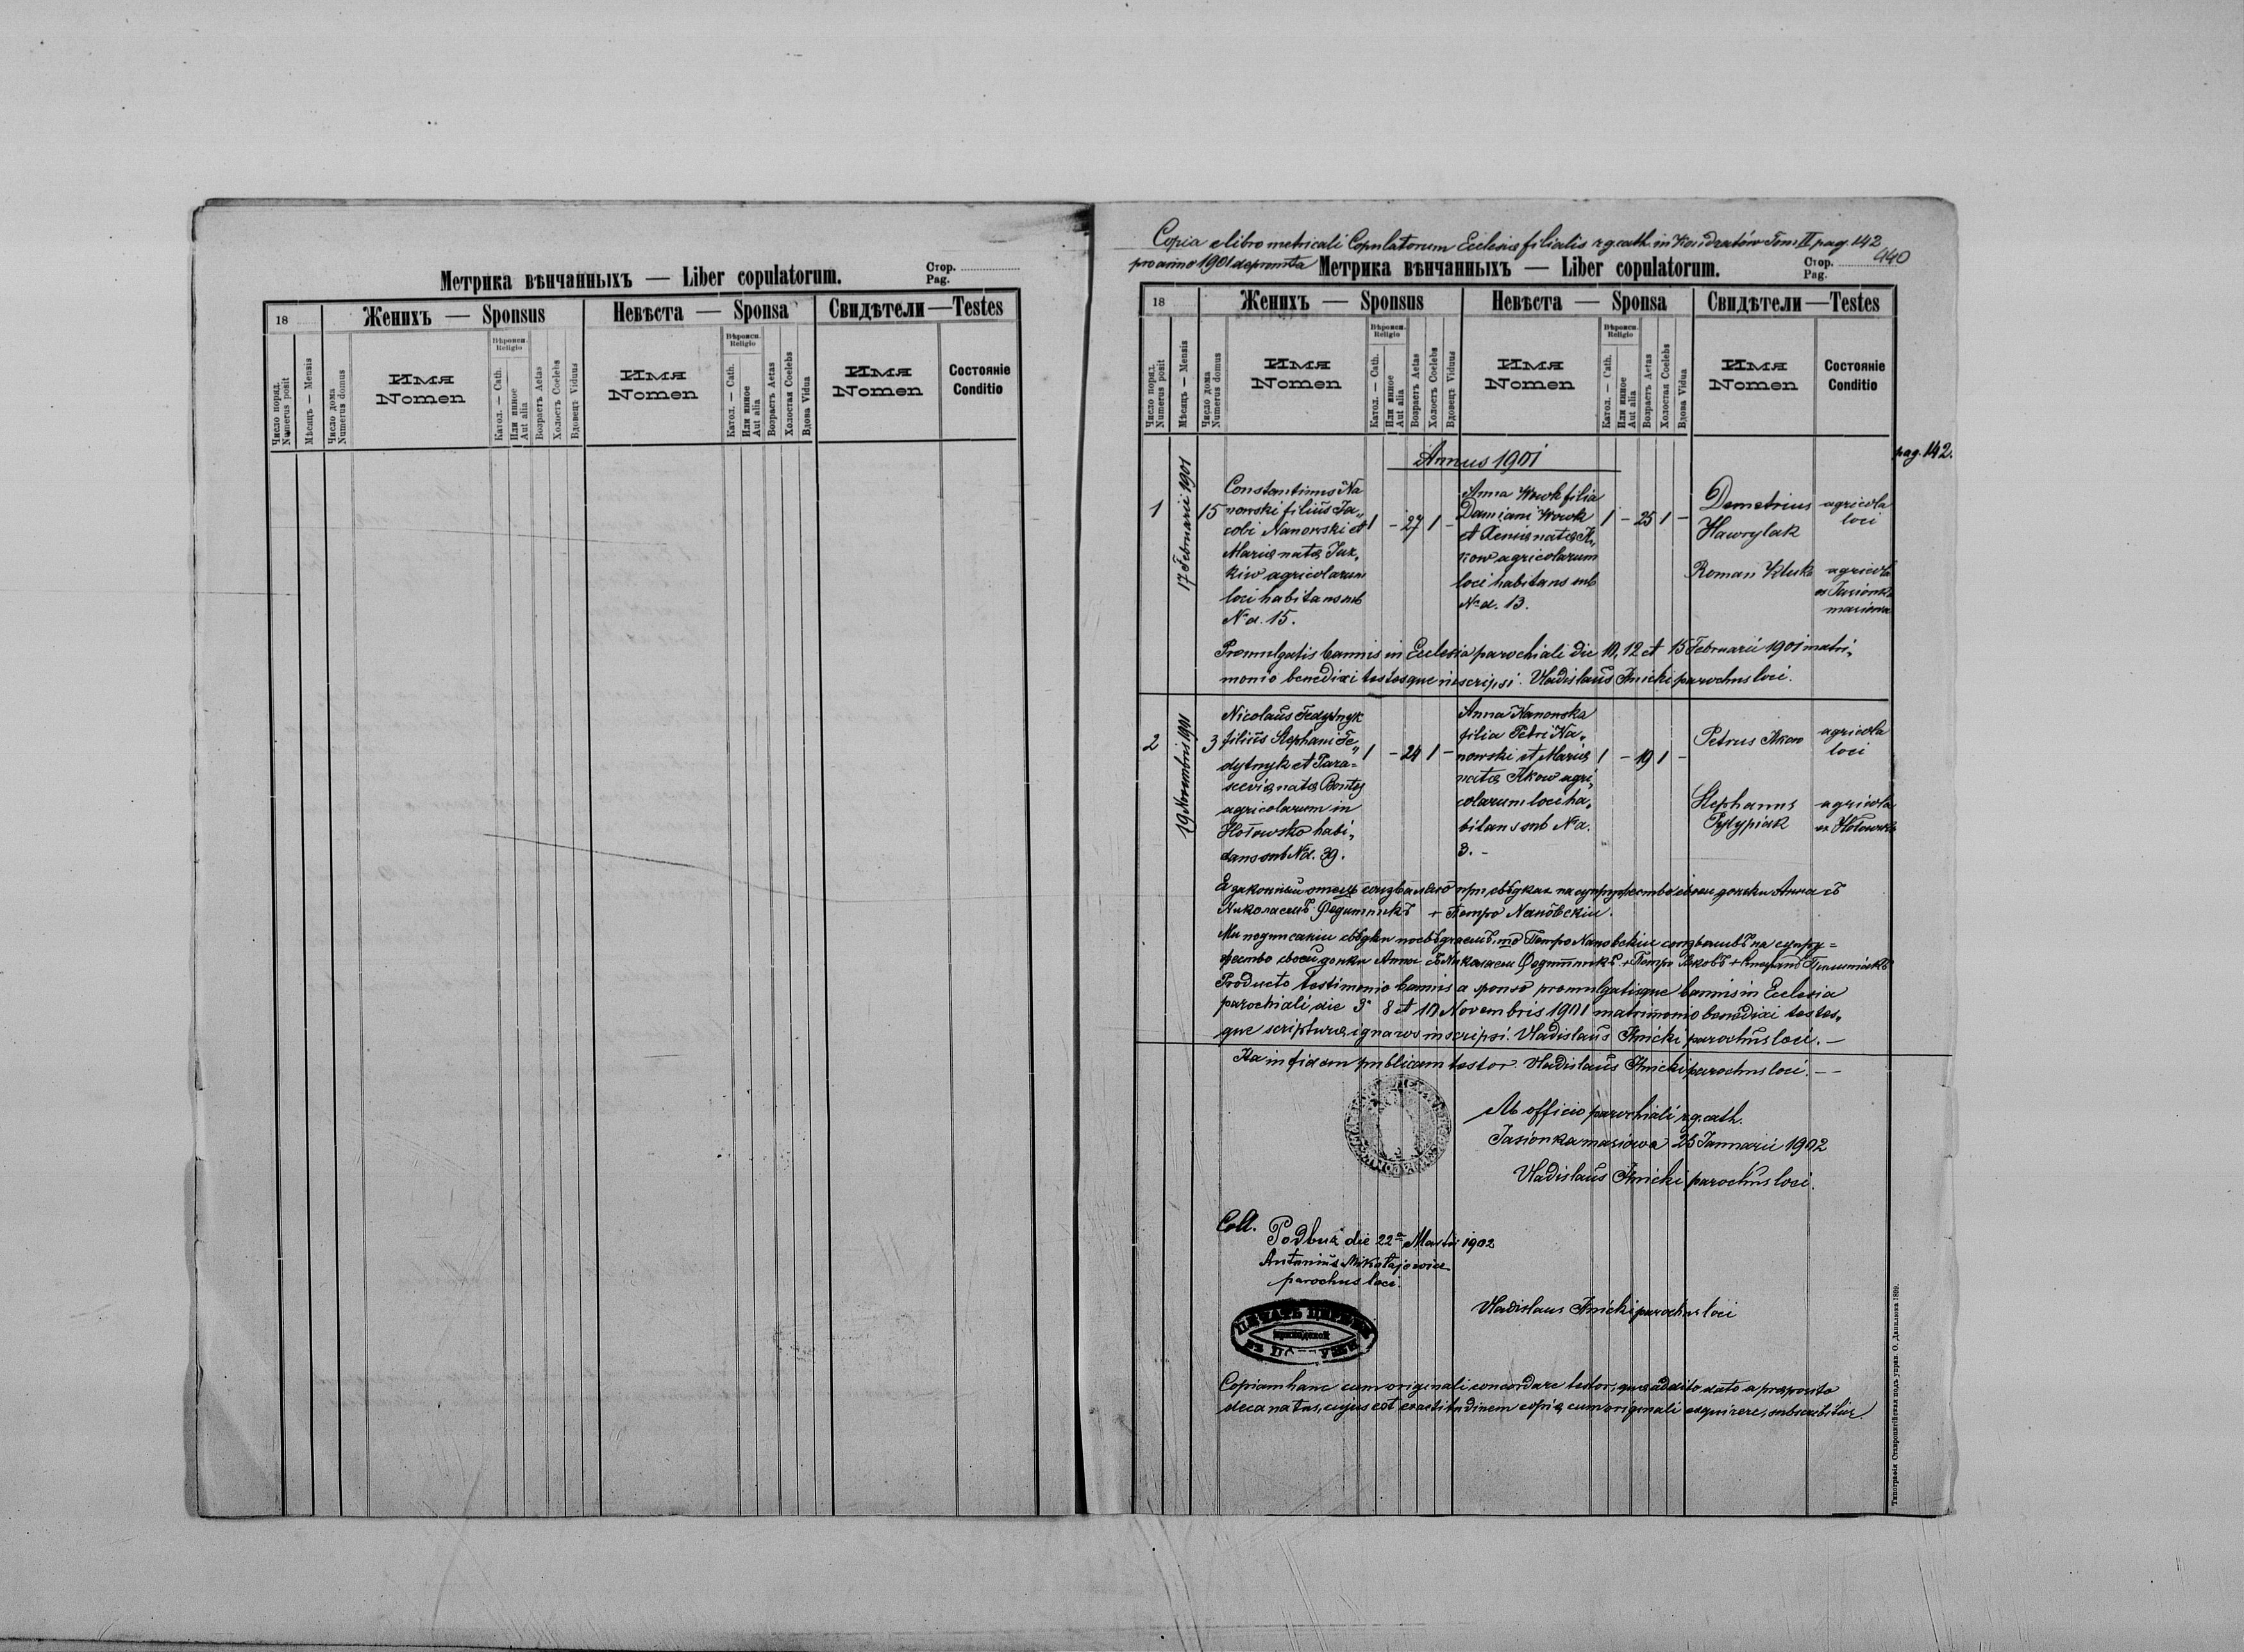 Метрика вѣнчанныхъ — Liber copulatorum.
Стор.
Pag.
18
Женихъ — Sponsus
Невѣста — Sponsa
Свидѣтели — Testes
Число поряд.
Numerus posit
Мѣсяцъ — Mensis
Число дома
Numerus domus
Имя
Nomen
Вѣроисп.
Religio
Катол. — Cath.
Или инное
Aut alia
Возрастъ Aetas
Холостъ Coelebs
Вдовецъ Viduus
Имя
Nomen
Вѣроисп.
Religio
Катол. — Cath.
Или инное
Aut alia
Возрастъ Aetas
Холостая Coelebs
Вдова Vidua
Имя
Nomen
Состояніе
Conditio
Copia e libro metricali Copulatorum Ecclesiæ filialis r. g. cath. in Kondratów Tom II pag. 142
pro anno 1901 deprompta
Метрика вѣнчанныхъ — Liber copulatorum.
Стор.
Pag.
440
18
Женихъ — Sponsus
Невѣста — Sponsa
Свидѣтели — Testes
Число поряд.
Numerus posit
Мѣсяцъ — Mensis
Число дома
Numerus domus
Имя
Nomen
Вѣроисп.
Religio
Катол. — Cath.
Или инное
Aut alia
Возрастъ Aetas
Холостъ Coelebs
Вдовецъ Viduus
Имя
Nomen
Вѣроисп.
Religio
Катол. — Cath.
Или инное
Aut alia
Возрастъ Aetas
Холостая Coelebs
Вдова Vidua
Имя
Nomen
Состояніе
Conditio
Annus 1901
pag. 142.
1
17 Februarii 1901
15
Constantinus Na
nowski filiŭs Ja„
cobi Nanowski et
Mariæ natæ Jux„
kiw agricolarum
loci habitans sub
N d. 15.
1 - 27 1 -
Anna Wowk filia
Damiani Wowk
et Xeniæ natæ
agricolarum
loci habitans sub
N d. 13.
1 - 25 1 -
Demetrius
Hawrylak
agricola
loci
Roman
agricola
ex Jasionka
masiowa
Promulgatis bannis in Ecclesia parochiali die 10, 12 et 15 Februarii 1901 matri„
monio benedixi testesque inscripsi. Vladislaŭs Ilnicki parochus loci.
2
19 Novembris 1901
3
Nicolaŭs Fedytnyk
filiŭs Stephani Fe„
dytnyk et Para=
sceviæ natæ Bontej
agricolarum in
Hołowsko habi„
tans sub Nd. 39.
1 - 24 1 -
Anna Nanowska
filia Petri Na„
nowski et Mariæ
natæ Ilkow agri„
colarum loci ha„
bitans sub N d.
3. -
1 - 19 1 -
Petrus Ilkow
agricola
loci
Stephanus
Pylypiak
agricola
ex Hołowsko
Я законный отецъ при свѣдкахъ на супружество своеи доньки Анна съ
Николаемъ Федитникъ + Петро Нановскій.
Мы подписаніи свѣдки посвѣдчаемъ, що Петро Нановскій на супру=
жество своеи доньки Анна съ Николаем Федитникъ + Петро Ильковъ + Пилипякъ
Producto testimonio bannis a sponso promulgatisque bannis in Ecclesia
parochiali die 3. 8 et 10 Novembris 1901 matrimonio benedixi testes„
que scripturæ ignaros inscripsi. Vladislaŭs Ilnicki parochŭs loci. —
Ita in fidem publicam testor. Vladislaŭs Ilnicki parochus loci. — —
Ab officio parochiali r. g. cath.
Jasionka masiowa 25 Januarii 1902
Vladislaŭs Ilnicki parochŭs loci.
Coll.
Podbuż die 22ª Martii 1902
Antoniŭs Mikołajowicz
parochus loci.
Vladislaus Ilnicki parochus loci
ПЕЧАТЬ ЦЕРКВИ
приходской
Copiam hanc cum originali concordare testor, quæ addito dato a præposito
decanatus, cujus est exactitudinem copiæ cum originali exquirere, subscribitŭr.
Типографія Ставропигійская подъ управ. О. Данилюка 1899.